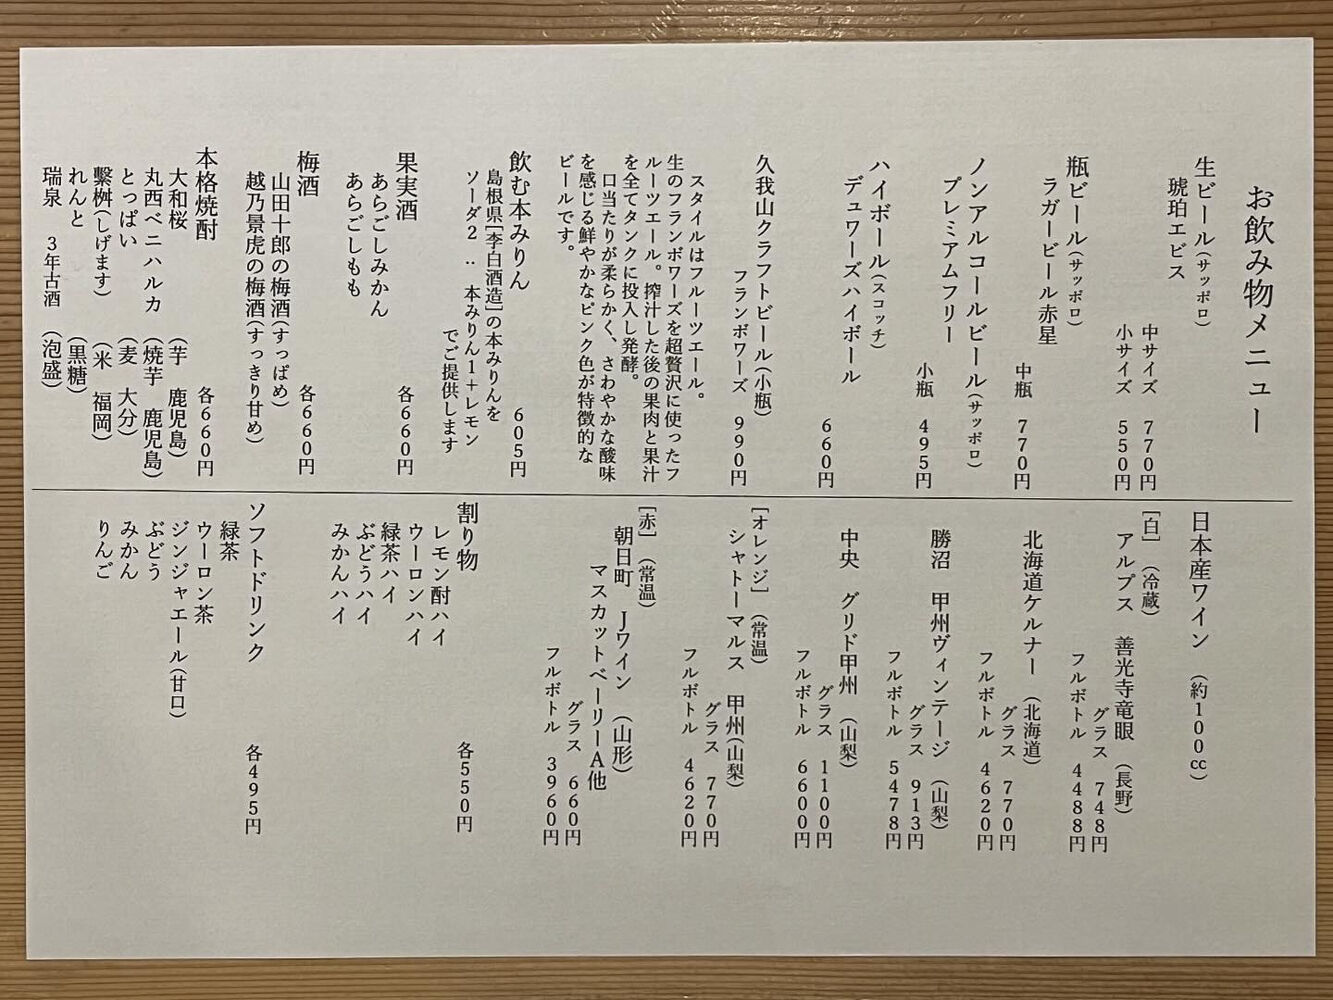 お飲み物メニュー
生ビール(サッポロ)
琥珀エビス
中サイズ 770円
小サイズ 550円
瓶ビール(サッポロ)
ラガービール赤星
中瓶 770円
ノンアルコールビール(サッポロ)
プレミアムフリー
小瓶 495円
ハイボール(スコッチ)
デュワーズハイボール
660円
久我山クラフトビール(小瓶)
フランボワーズ 990円
スタイルはフルーツエール。
生のフランボワーズを超贅沢に使ったフ
ルーツエール。搾汁した後の果肉と果汁
を全てタンクに投入し発酵。
口当たりが柔らかく、さわやかな酸味
を感じる鮮やかなピンク色が特徴的な
ビールです。
飲む本みりん 605円
島根県[李白酒造]の本みりんを
ソーダ2:本みりん1+レモン
でご提供します
果実酒 各660円
あらごしみかん
あらごしもも
梅酒 各660円
山田十郎の梅酒(すっぱめ)
越乃景虎の梅酒(すっきり甘め)
本格焼酎 各660円
大和桜 (芋 鹿児島)
丸西ベニハルカ (焼芋 鹿児島)
とっぱい (麦 大分)
繫桝(しげます) (米 福岡)
れんと (黒糖)
瑞泉 3年古酒 (泡盛)
日本産ワイン (約100㏄)
[白] (冷蔵)
アルプス 善光寺竜眼 (長野)
グラス 748円
フルボトル 4488円
北海道ケルナー (北海道)
グラス 770円
フルボトル 4620円
勝沼 甲州ヴィンテージ (山梨)
グラス 913円
フルボトル 5478円
中央 グリド甲州 (山梨)
グラス 1100円
フルボトル 6600円
[オレンジ] (常温)
シャトーマルス 甲州(山梨)
グラス 770円
フルボトル 4620円
[赤] (常温)
朝日町 Jワイン (山形)
マスカットベーリーA他
グラス 660円
フルボトル 3960円
割り物 各550円
レモン酎ハイ
ウーロンハイ
緑茶ハイ
ぶどうハイ
みかんハイ
ソフトドリンク 各495円
緑茶
ウーロン茶
ジンジャエール(甘口)
ぶどう
みかん
りんご